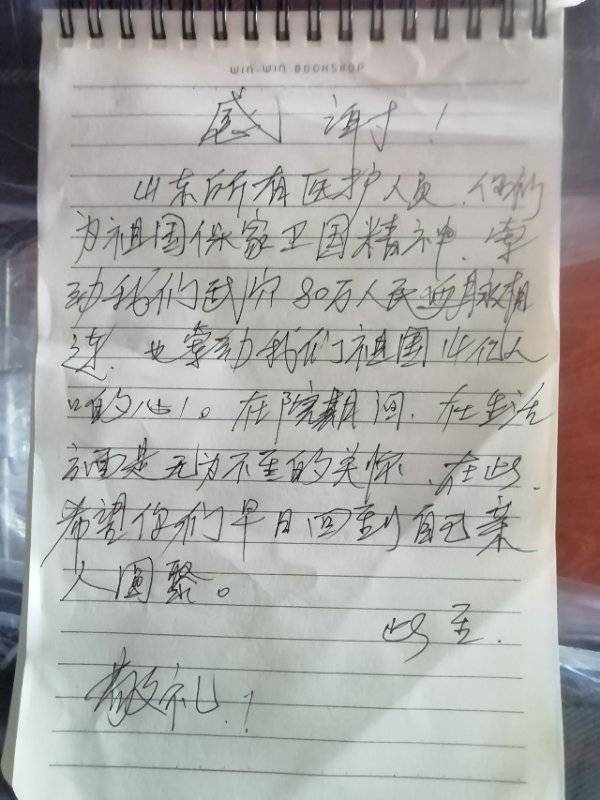 WIN-WIN BOOKSHOP
感谢！
山东所有医护人员，你们
为祖国保家卫国精神，牵
动我们武穴80万人民血脉相
连，也牵动我们祖国14亿人
口的心。在院期间，在生活
方面是无为不至的关怀，在此，
希望你们早日回到自己亲
人圆聚。
此至
敬礼！